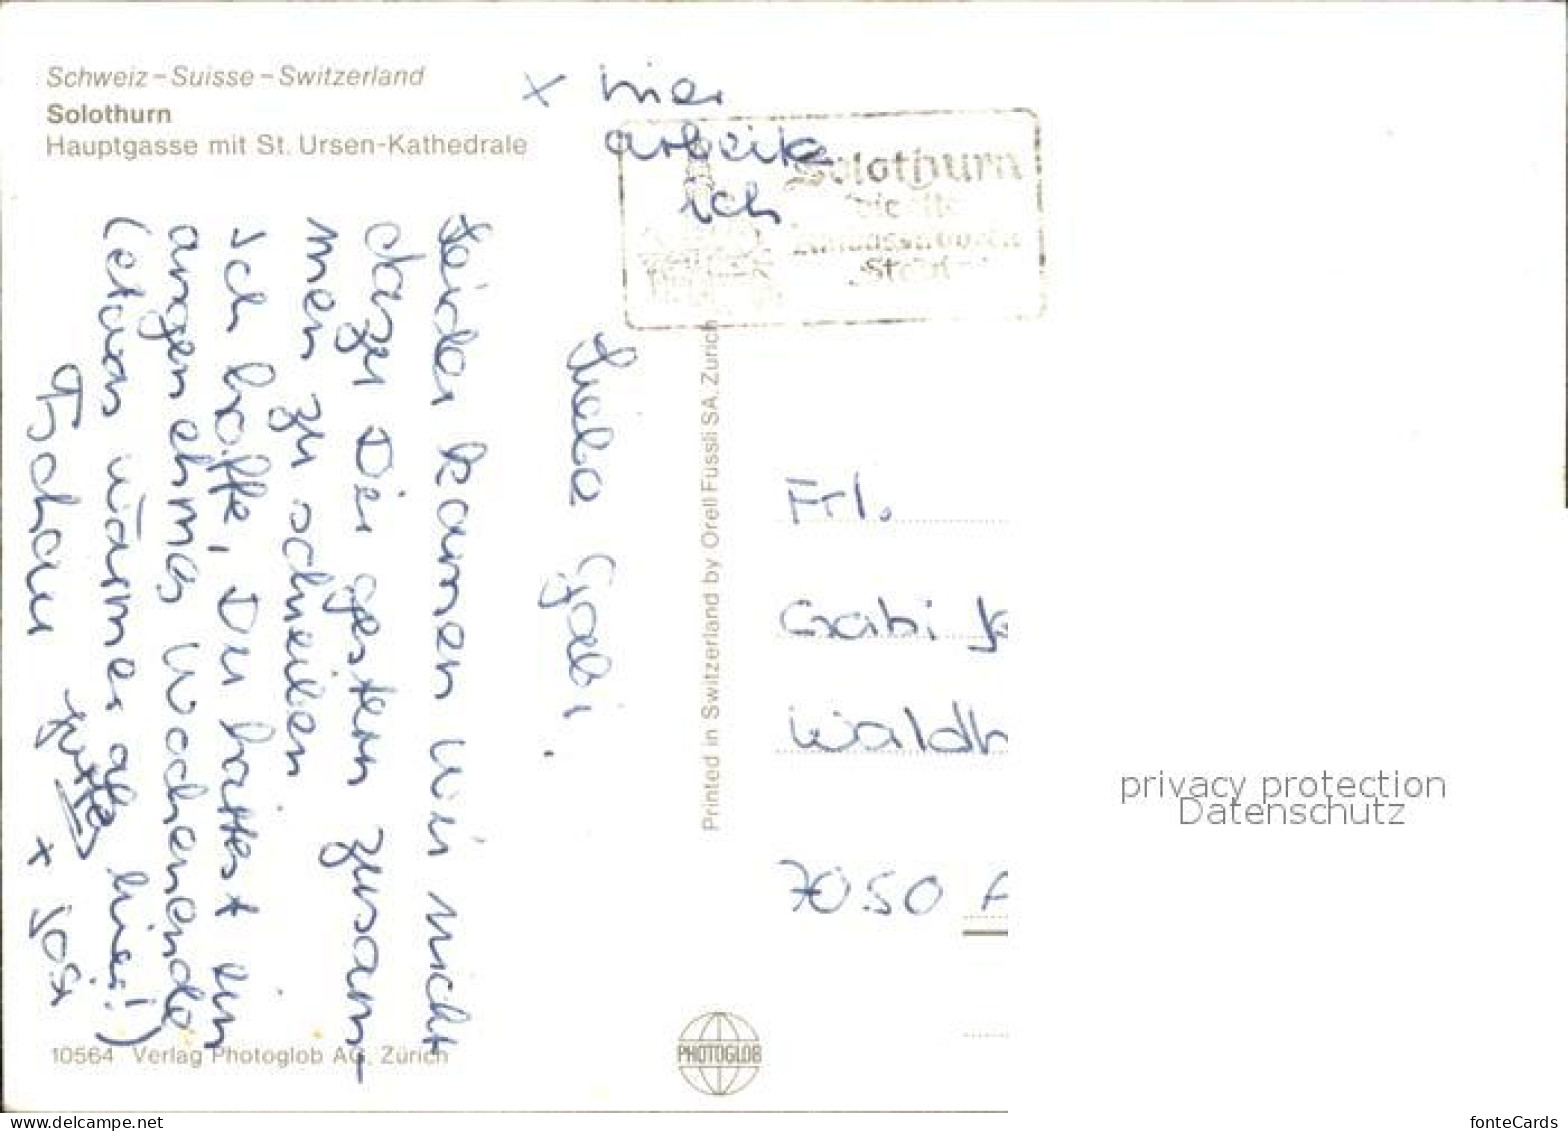 Schweiz – Suisse – Switzerland
Solothurn
Hauptgasse mit St. Ursen-Kathedrale
x hier
arbeite
ich
Solothurn
Die alte
Ambassadoren
Stadt
Liebe Gabi,
Leider kamen wir nicht
dazu Dir gestern zusam-
men zu schreiben.
Ich hoffe, Du hattest ein
angenehmes Wochenende
(etwas wärmer als hier!)
Tschau Jutta + Josi
Printed in Switzerland by Orell Füssli SA, Zürich
Frl.
Gabi
Waldh
7050
10564 Verlag Photoglob AG, Zürich
PHOTOGLOB
privacy protection
Datenschutz
www.ansichtskartenversand.com
fonteCards